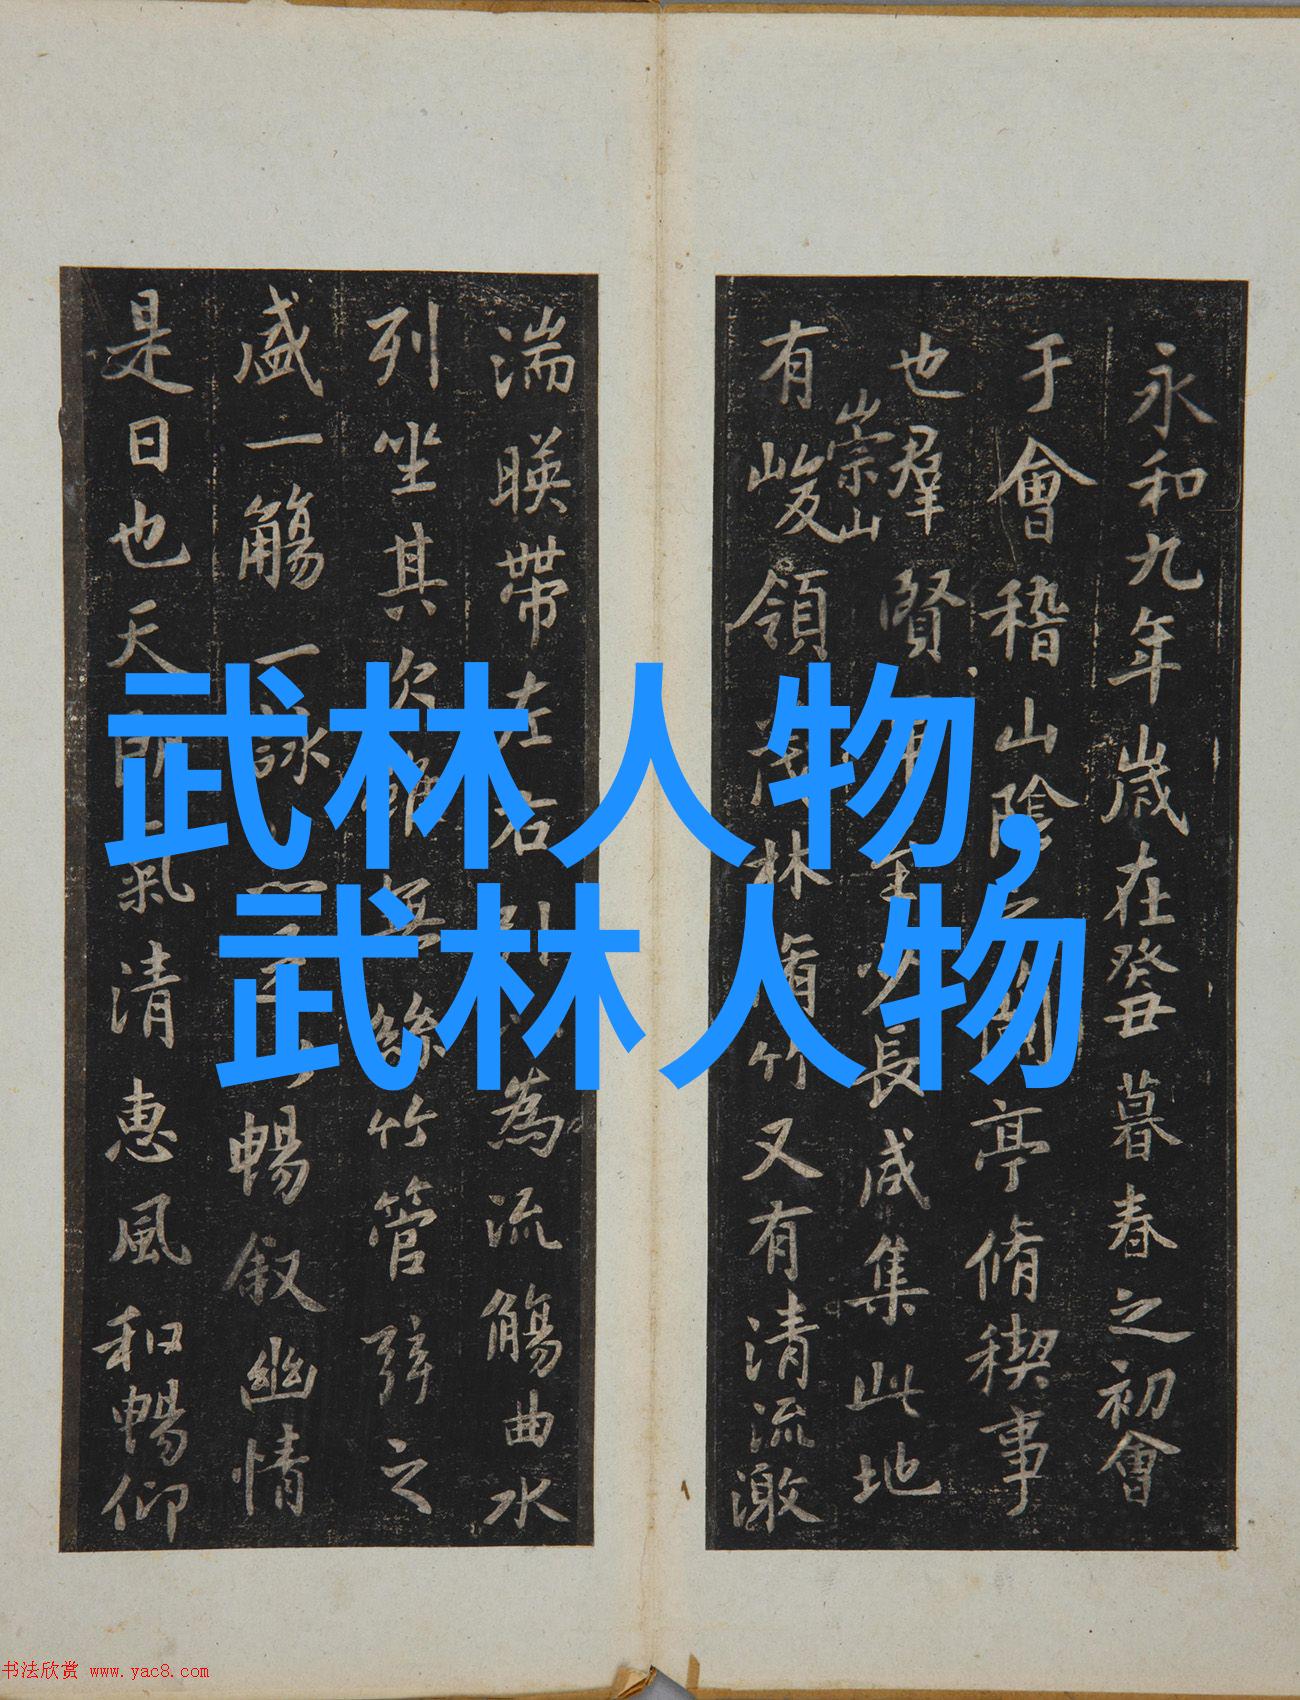 武林人物,
武林人物
永和九年歲在癸丑暮春之初會
于會稽山陰蘭亭脩禊事
也羣賢至少長咸集此地
有崇山峻領茂林脩竹又有清流激
湍暎帶左右為流觴曲水
列坐其次雖無絲竹管弦之
盛一觴一詠暢叙幽情
是日也天朗氣清惠風和暢仰
书法欣赏 www.yac8.com